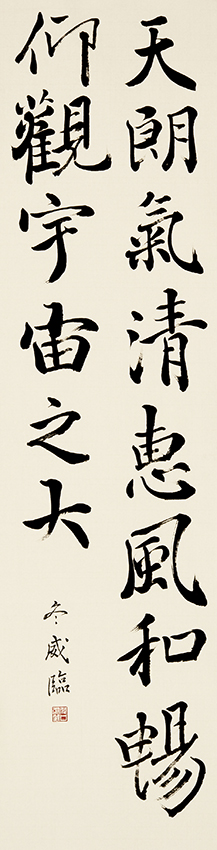 天朗氣清惠風和暢
仰觀宇宙之大
冬威臨